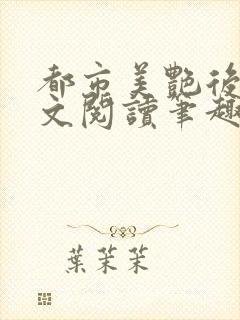 都市美艷後
文閱讀筆趣
葉茉茉